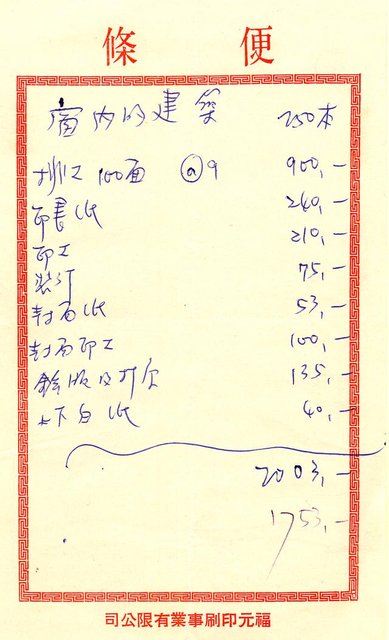 便條
窗內的建築 250本
排工 100面 @9 900,-
印書紙 240,-
印工 210,-
裝訂 75,-
封面紙 53,-
封面印工 100,-
鋅版及 135,-
上下白紙 40,-
2003,-
1753,-
福元印刷事業有限公司